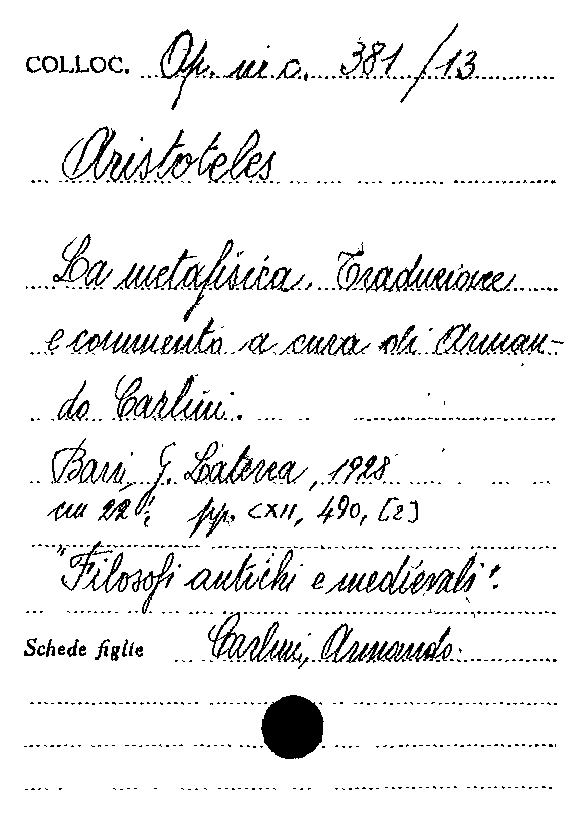 COLLOC. Op. mi c. 381/13
Aristoteles
La metafisica. Traduzione
e commento a cura di Arman-
do Carlini.
Bari, G. Laterza, 1928
cm 22. pp. CXII, 490, [2]
"Filosofi antichi e medievali".
Schede figlie Carlini, Armando.